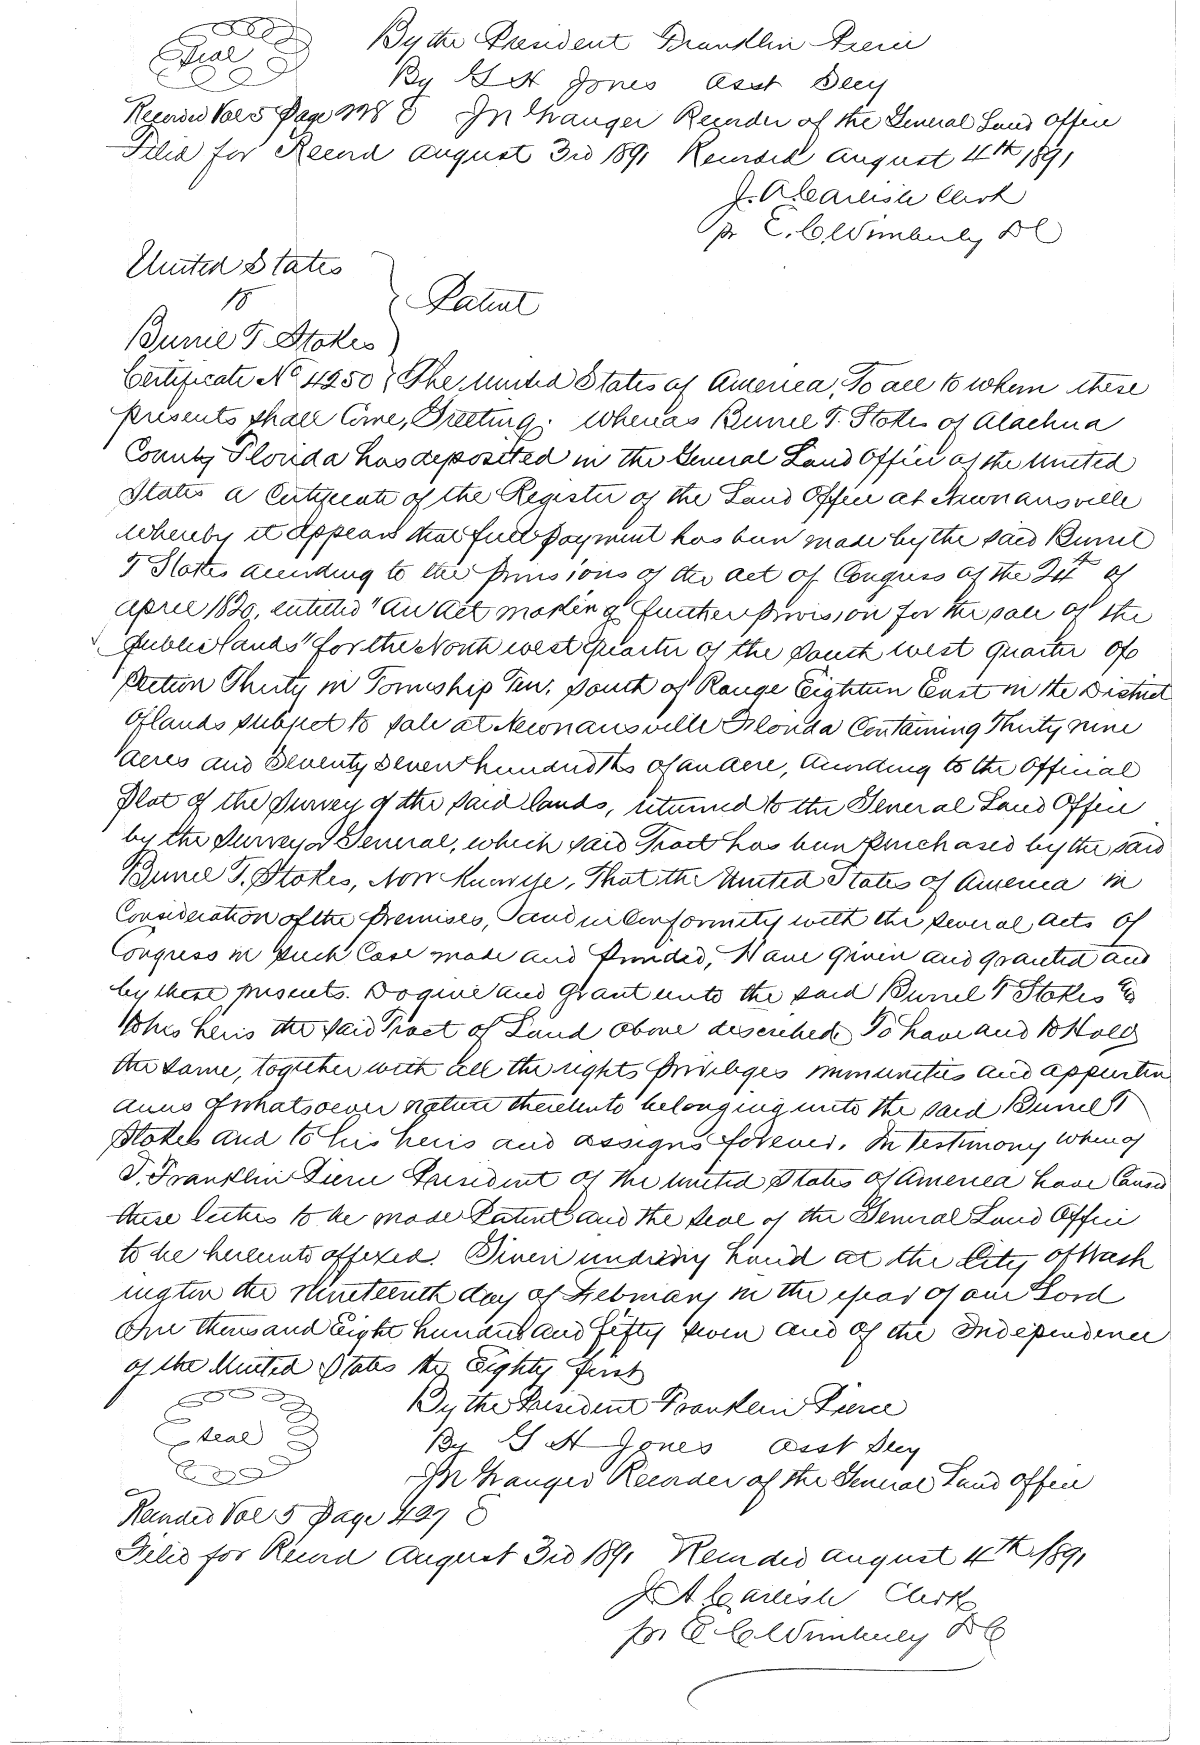 Seal
By the President Franklin Pierce
By G H Jones Asst Secy
Recorded Vol 5 Page 428 J N Granger Recorder of the General Land Office
Filed for Record August 3rd 1891 Recorded August 4th 1891
J. A. Carlisle Clerk
pr E. C. Wimberly D C
United States
to
Patent
Burrel T Stokes
Certificate No 4250 } The United States of America, To all to whom these
presents shall Come, Greeting. Whereas Burrel T. Stokes of Alachua
County Florida has deposited in the General Land Office of the United
States a Certificate of the Register of the Land Office at Newnansville
whereby it appears that full payment has been made by the said Burrel
T Stokes according to the provisions of the act of Congress of the 24th of
April 1820, entitled "An Act making further provision for the sale of the
public lands" for the North west quarter of the South west quarter of
Section Thirty in Township Ten, South of Range Eighteen East in the District
of lands subject to sale at Newnansville Florida Containing Thirty nine
acres and Seventy seven hundredths of an acre, According to the Official
Plat of the Survey of the said lands, returned to the General Land Office
by the Surveyor General, which said Tract has been purchased by the said
Burrel T. Stokes, Now Know ye, That the United States of America in
Consideration of the premises, and in Conformity with the several acts of
Congress in such Case made and provided, Have given and granted and
by these presents. Do give and grant unto the said Burrel T Stokes &
to his heirs the said Tract of Land above described, To have and to Hold
the same, together with all the rights privileges immunities and appurten
ances of whatsoever nature thereunto belonging unto the said Burrel T
Stokes and to his heirs and assigns forever. In Testimony whereof
I. Franklin Pierce President of the United States of America have Caused
these letters to be made Patent and the seal of the General Land Office
to be hereunto affixed. Given under my hand at the City of Wash
ington the Nineteenth day of February in the year of our Lord
One thousand Eight hundred and fifty seven and of the Independence
of the United States the Eighty first
Seal
By the President Franklin Pierce
By G H Jones Asst Secy
J N Granger Recorder of the General Land Office
Recorded Vol 5 Page 427
Filed for Record August 3rd 1891 Recorded August 4th 1891
J A Carlisle Clerk
pr E C Wimberly D C